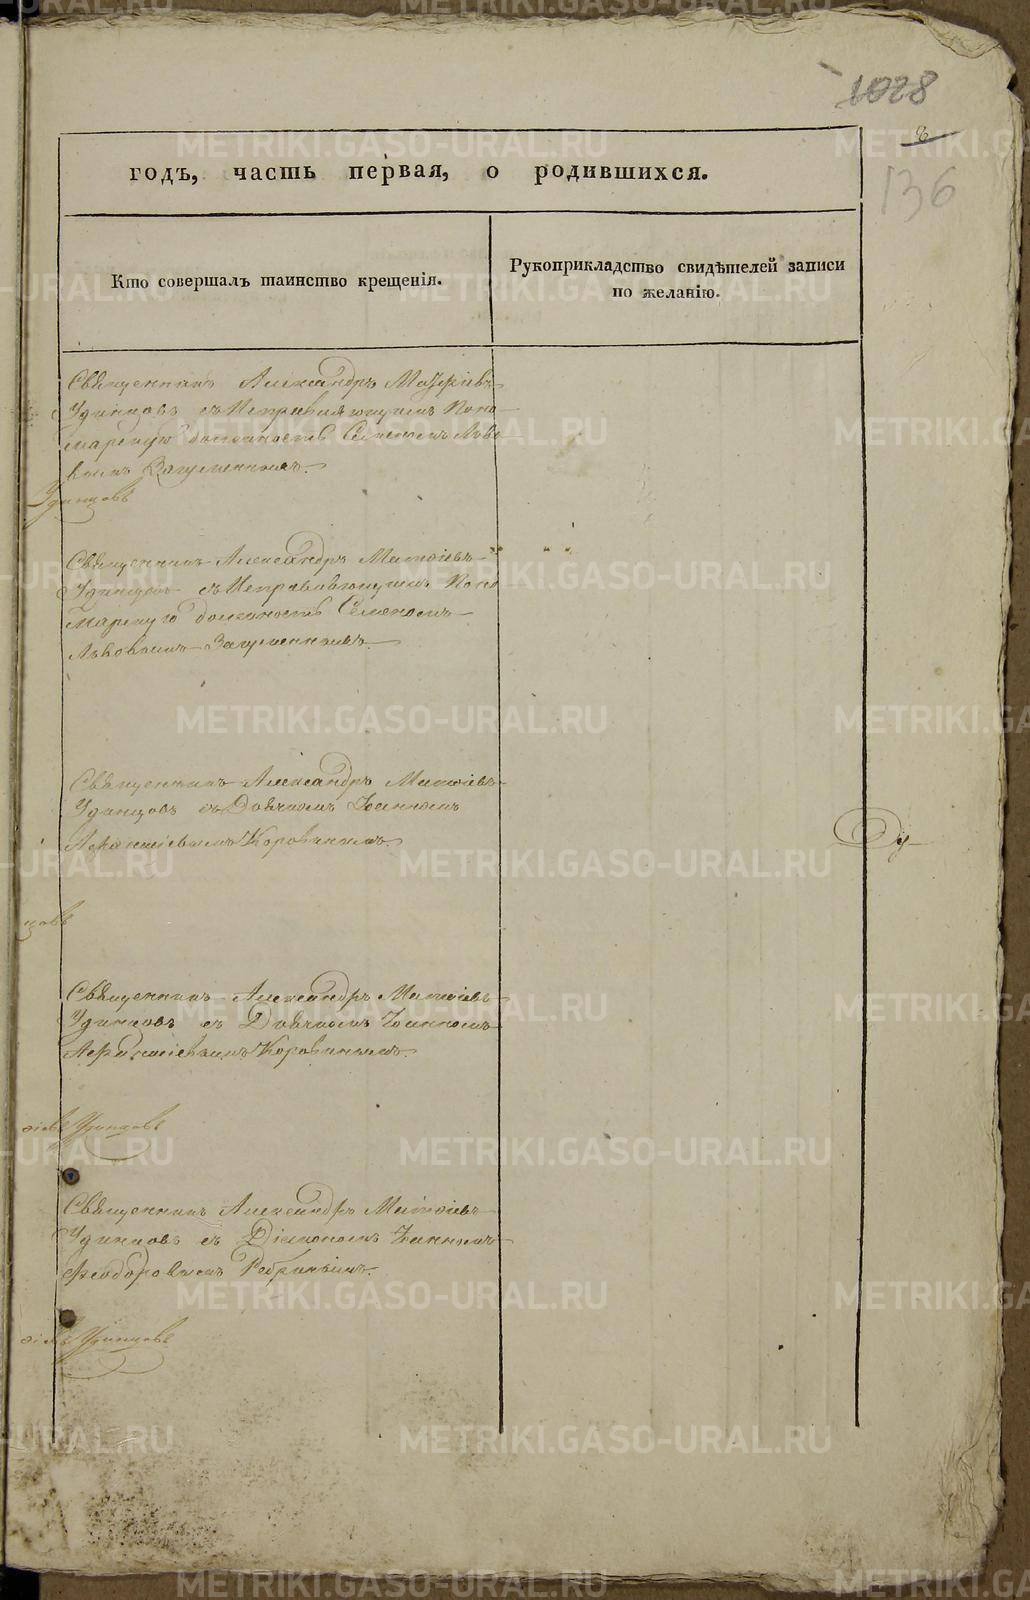 1028
8
136
годъ, часть первая, о родившихся.
Кто совершалъ таинство крещенія.
Рукоприкладство свидѣтелей записи
по желанію.
Священникъ Александръ
Удинцовъ съ Исправляющимъ Поно-
марскую должность Семеномъ Льво-
вымъ Загуменнымъ.
Удинцовъ
Священникъ Александръ Матѳіевъ
Удинцовъ съ Исправляющимъ Поно-
марскую должность Семеномъ
Львовымъ Загуменнымъ.
Священникъ Александръ Матѳіевъ
Удинцовъ съ Дьячкомъ Іоанномъ
Афанасіевымъ Коровинымъ.
Ду-
цовъ
Священникъ Александръ Матѳіевъ
Удинцовъ съ Дьячкомъ Іоанномъ
Афанасіевымъ Коровинымъ.
ѳіевъ Удинцовъ
Священникъ Александръ Матѳіевъ
Удинцовъ съ Діакономъ Іоанномъ
Ѳеодоровымъ
ѳіевъ Удинцовъ
METRIKI.GASO-URAL.RU